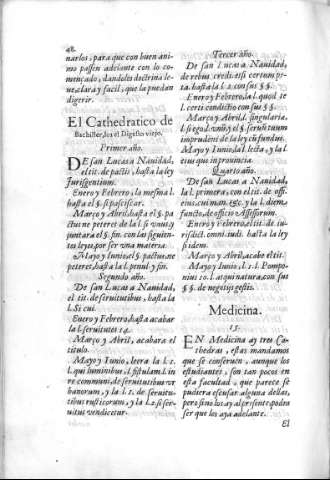 48.
narlos, para que con buen ani-
mo passen adelante con lo co-
mençado, dandoles doctrina le-
ue, clara y facil, que la puedan
digerir.
El Cathedratico de
Bachilleres, lea el Digesto viejo.
Primer año.
DE san Lucas a Nauidad,
el tit. de pactis, hasta la ley
Jurisgentium.
Enero y Febrero, la mesma l.
hasta el §. si paciscar.
Março y Abril, hasta el §. pa
ctus ne peteret de la l. si vnus, y
juntara el §. fin. con las siguien-
tes leyes, por ser vna materia.
Mayo y Iunio, el §. pactus, ne
peteret, hasta la l. penul. y fin.
Segundo año.
De san Lucas a Nauidad,
el tit. de seruitutibus, hasta la
l. Si cui.
Enero y Febrero, hasta acabar
la l. seruitutes 14.
Março y Abril, acabara el
titulo.
Mayo y Iunio, leera la l. 2.
l. qui luminibus, l. fistulam l. in
re communi, de seruitutibus vr
banorum, y la l. 1. de seruitu-
tibus rusticorum, y la l. 2. si ser-
uitus vendicetur.
Tercer año.
De san Lucas a Nauidad,
de rebus creditis si certum pe-
ta. hasta la l. 2. con sus §§.
Enero y Febrero, la l. quod te
l. certi condictio con sus §§.
Março y Abril, l. singularia.
l. si ego
imprudens de la ley cũ fundus.
Mayo y Iunio, la l. lecta, y la l.
eius qui in prouincia.
Quarto año.
De san Lucas a Nauidad,
la l. primera, con el tit. de offi-
cius cui man. &c. y la l. diem
functo, de officio Assessorum.
Enero y Febrero, el tit. de iu-
risdict. omni. iudi. hasta la ley
si idem.
Março y Abril, acabe el tit.
Mayo y Iunio, l. 1. l. Pompo-
nius 10. l. atqui natura, con sus
§§. de negotijs gestis.
Medicina.
15.
EN Medicina ay tres Ca-
thedras, estas mandamos
que se conseruen, aunque los
estudiantes, son tan pocos en
esta facultad, que parece se
pudiera escusar alguna dellas,
pero sino los ay al presente, podra
ser que los aya adelante.
El